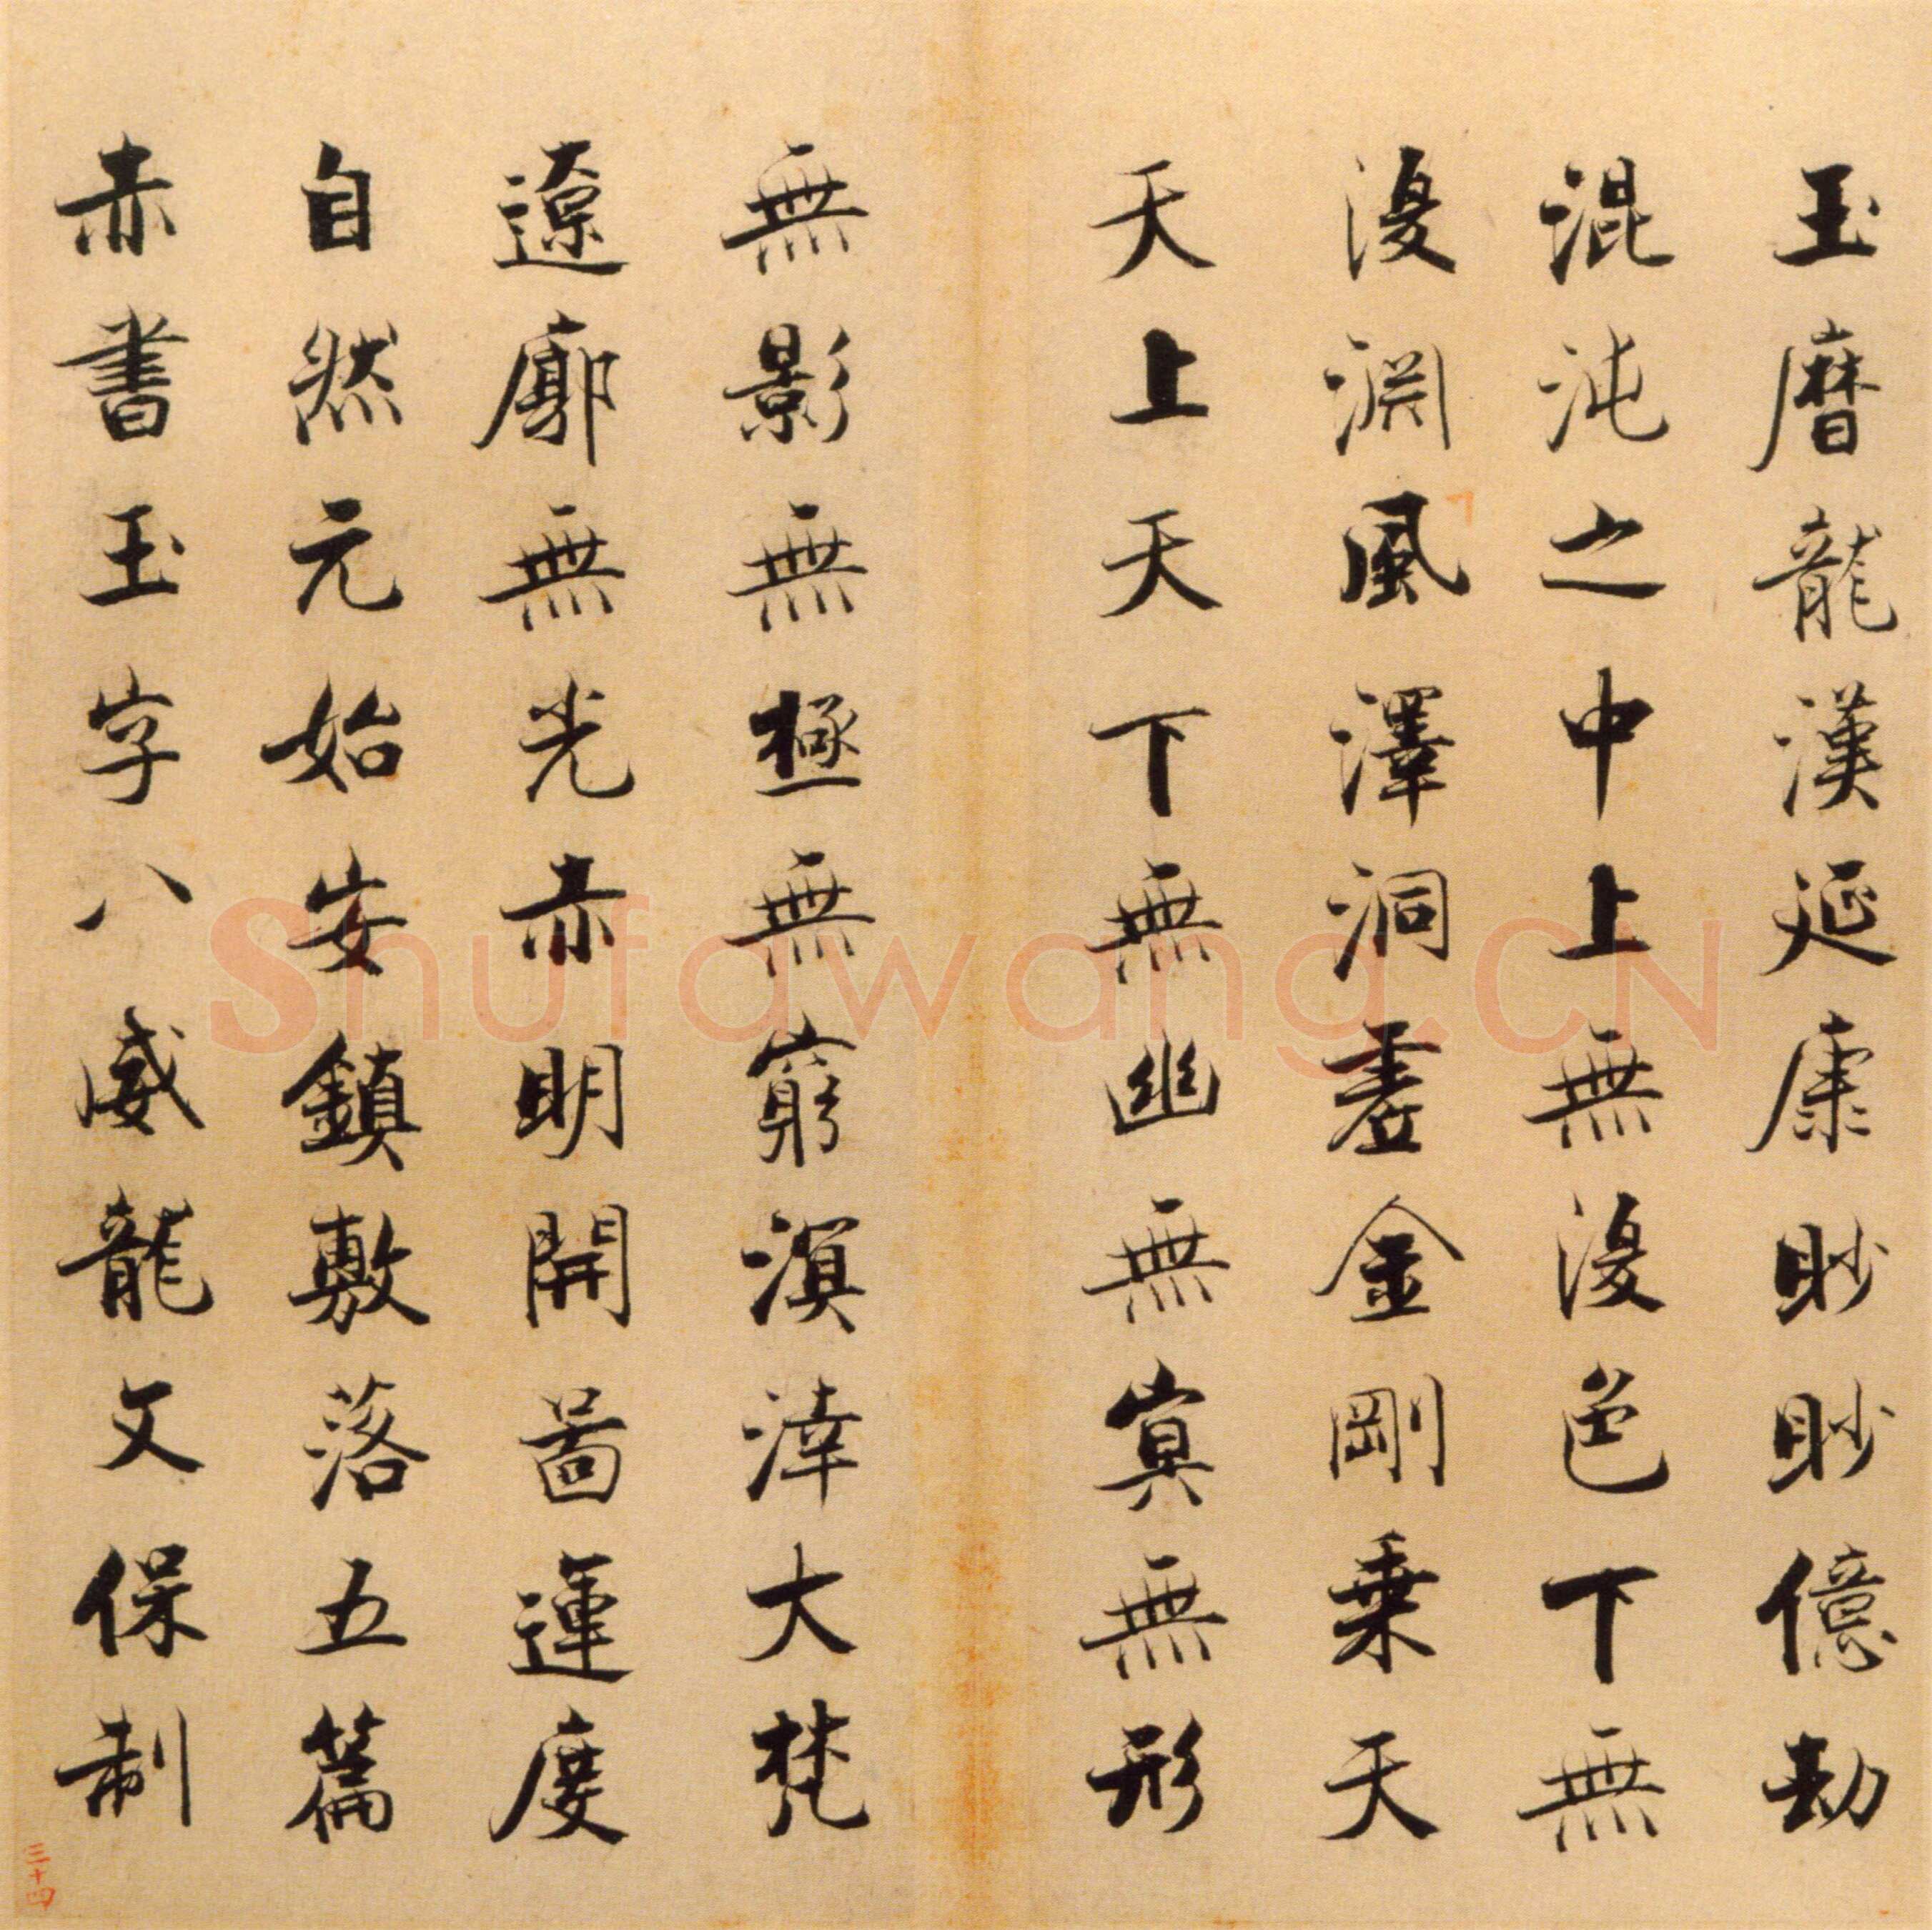 玉曆龍漢延康眇眇億劫
混沌之中上無復色下無
復淵風澤洞虛金剛乗天
天上天下無幽無冥無形
無影無極無窮溟涬大梵
遼廓無光赤明開啚運度
自然元始安鎮敷落五篇
赤書玉字八威龍文保制
三十四
Shufawang.CN